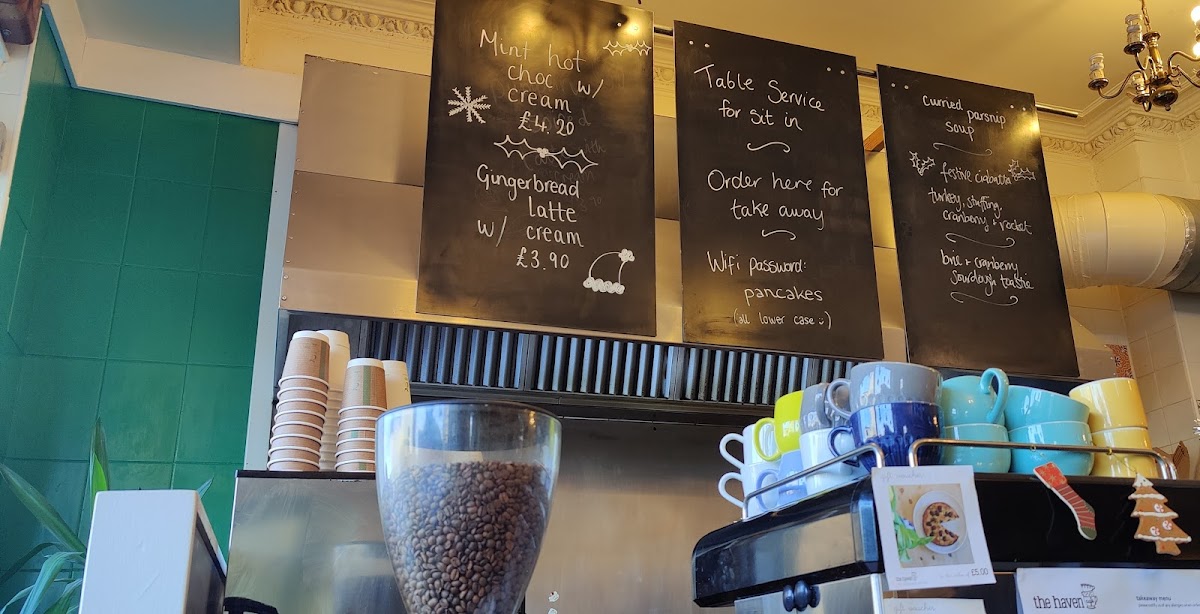 Mint hot
choc w/
cream
£4.20
Gingerbread
latte
w/ cream
£3.90
Table Service
for sit in
Order here for
take away
Wifi password:
pancakes
(all lower case :)
Curried parsnip
soup
festive ciabatta
turkey, stuffing,
cranberry + rocket
brie + cranberry
sourdough toastie
gift voucher
£5.00
the haven
takeaway menu